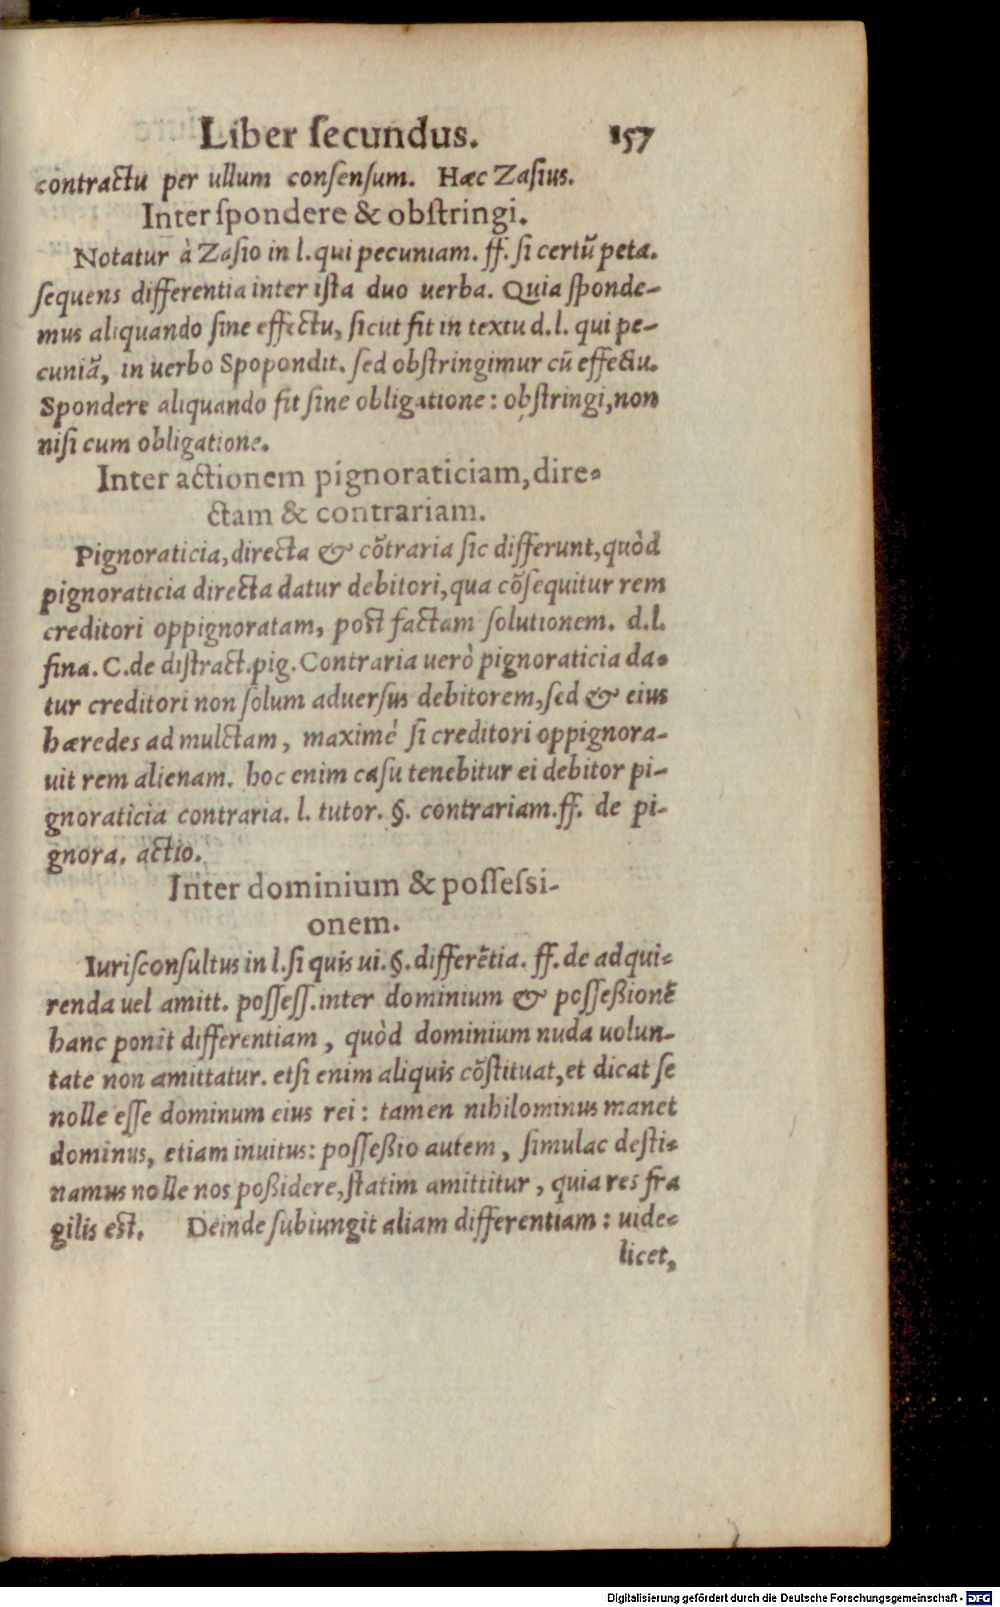 Liber ſecundus. 157
contractu per ullum conſenſum. Hæc Zaſius.
Inter ſpondere & obſtringi.
Notatur à Zaſio in l. qui pecuniam. ff. ſi certũ peta.
ſequens differentia inter iſta duo uerba. Quia ſponde-
mus aliquando ſine effectu, ſicut fit in textu d. l. qui pe-
cuniã, in uerbo Spopondit. ſed obſtringimur cũ effectu.
Spondere aliquando fit ſine obligatione: obſtringi, non
niſi cum obligatione.
Inter actionem pignoraticiam, dire-
ctam & contrariam.
Pignoraticia, directa & cõtraria ſic differunt, quòd
pignoraticia directa datur debitori, qua cõſequitur rem
creditori oppignoratam, poſt factam ſolutionem. d. l.
fina. C. de diſtract. pig. Contraria uerò pignoraticia da-
tur creditori non ſolum aduerſus debitorem, ſed & eius
hæredes ad mulctam, maximè ſi creditori oppignora-
uit rem alienam. hoc enim caſu tenebitur ei debitor pi-
gnoraticia contraria. l. tutor. §. contrariam. ff. de pi-
gnora. actio.
Inter dominium & poſſeſsi-
onem.
Iuriſconſultus in l. ſi quis ui. §. differẽtia. ff. de adqui-
renda uel amitt. poſſeſſ. inter dominium & poſſeßionẽ
hanc ponit differentiam, quòd dominium nuda uolun-
tate non amittatur. etſi enim aliquis cõſtituat, et dicat ſe
nolle eſſe dominum eius rei: tamen nihilominus manet
dominus, etiam inuitus: poſſeßio autem, ſimulac deſti-
namus nolle nos poßidere, ſtatim amittitur, quia res fra
gilis eſt. Deinde ſubiungit aliam differentiam: uide-
licet,
Digitalisierung gefördert durch die Deutsche Forschungsgemeinschaft - DFG